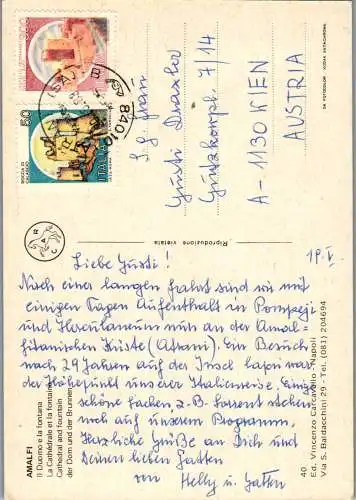 S. g. Frau
Gusti Draxler
Gutzkowpl. 7/14
A-1130 WIEN
AUSTRIA
84010
50
ITALIA
ROCCA DI
CALASCIO
Riproduzione vietata
DA FOTOCOLOR KODAK EKTACHROME
19. V.
Liebe Gusti!
Nach einer langen Fahrt sind wir mit
einigen Tagen Aufenthalt in Pompeji
und Herculaneum nun an der Amal-
fitanischen Küste (Atrani). Ein Besuch
nach 29 Jahren auf der Insel Capri war
der Höhepunkt unserer Italienreise. Einige
schöne Sachen, z.B. Sorrent stehen
noch auf unserem Programm.
Herzliche Grüße an Dich und
Deinen lieben Gatten
von Helly u. Gatten
AMALFI
Il Duomo e la fontana
La Cathédrale et la fontaine
Cathedral and fountain
der Dom und der Brunnen
40
Ed. Vincenzo Carcavallo - Napoli
Via S. Baldacchini 29 - Tel. (081) 204694